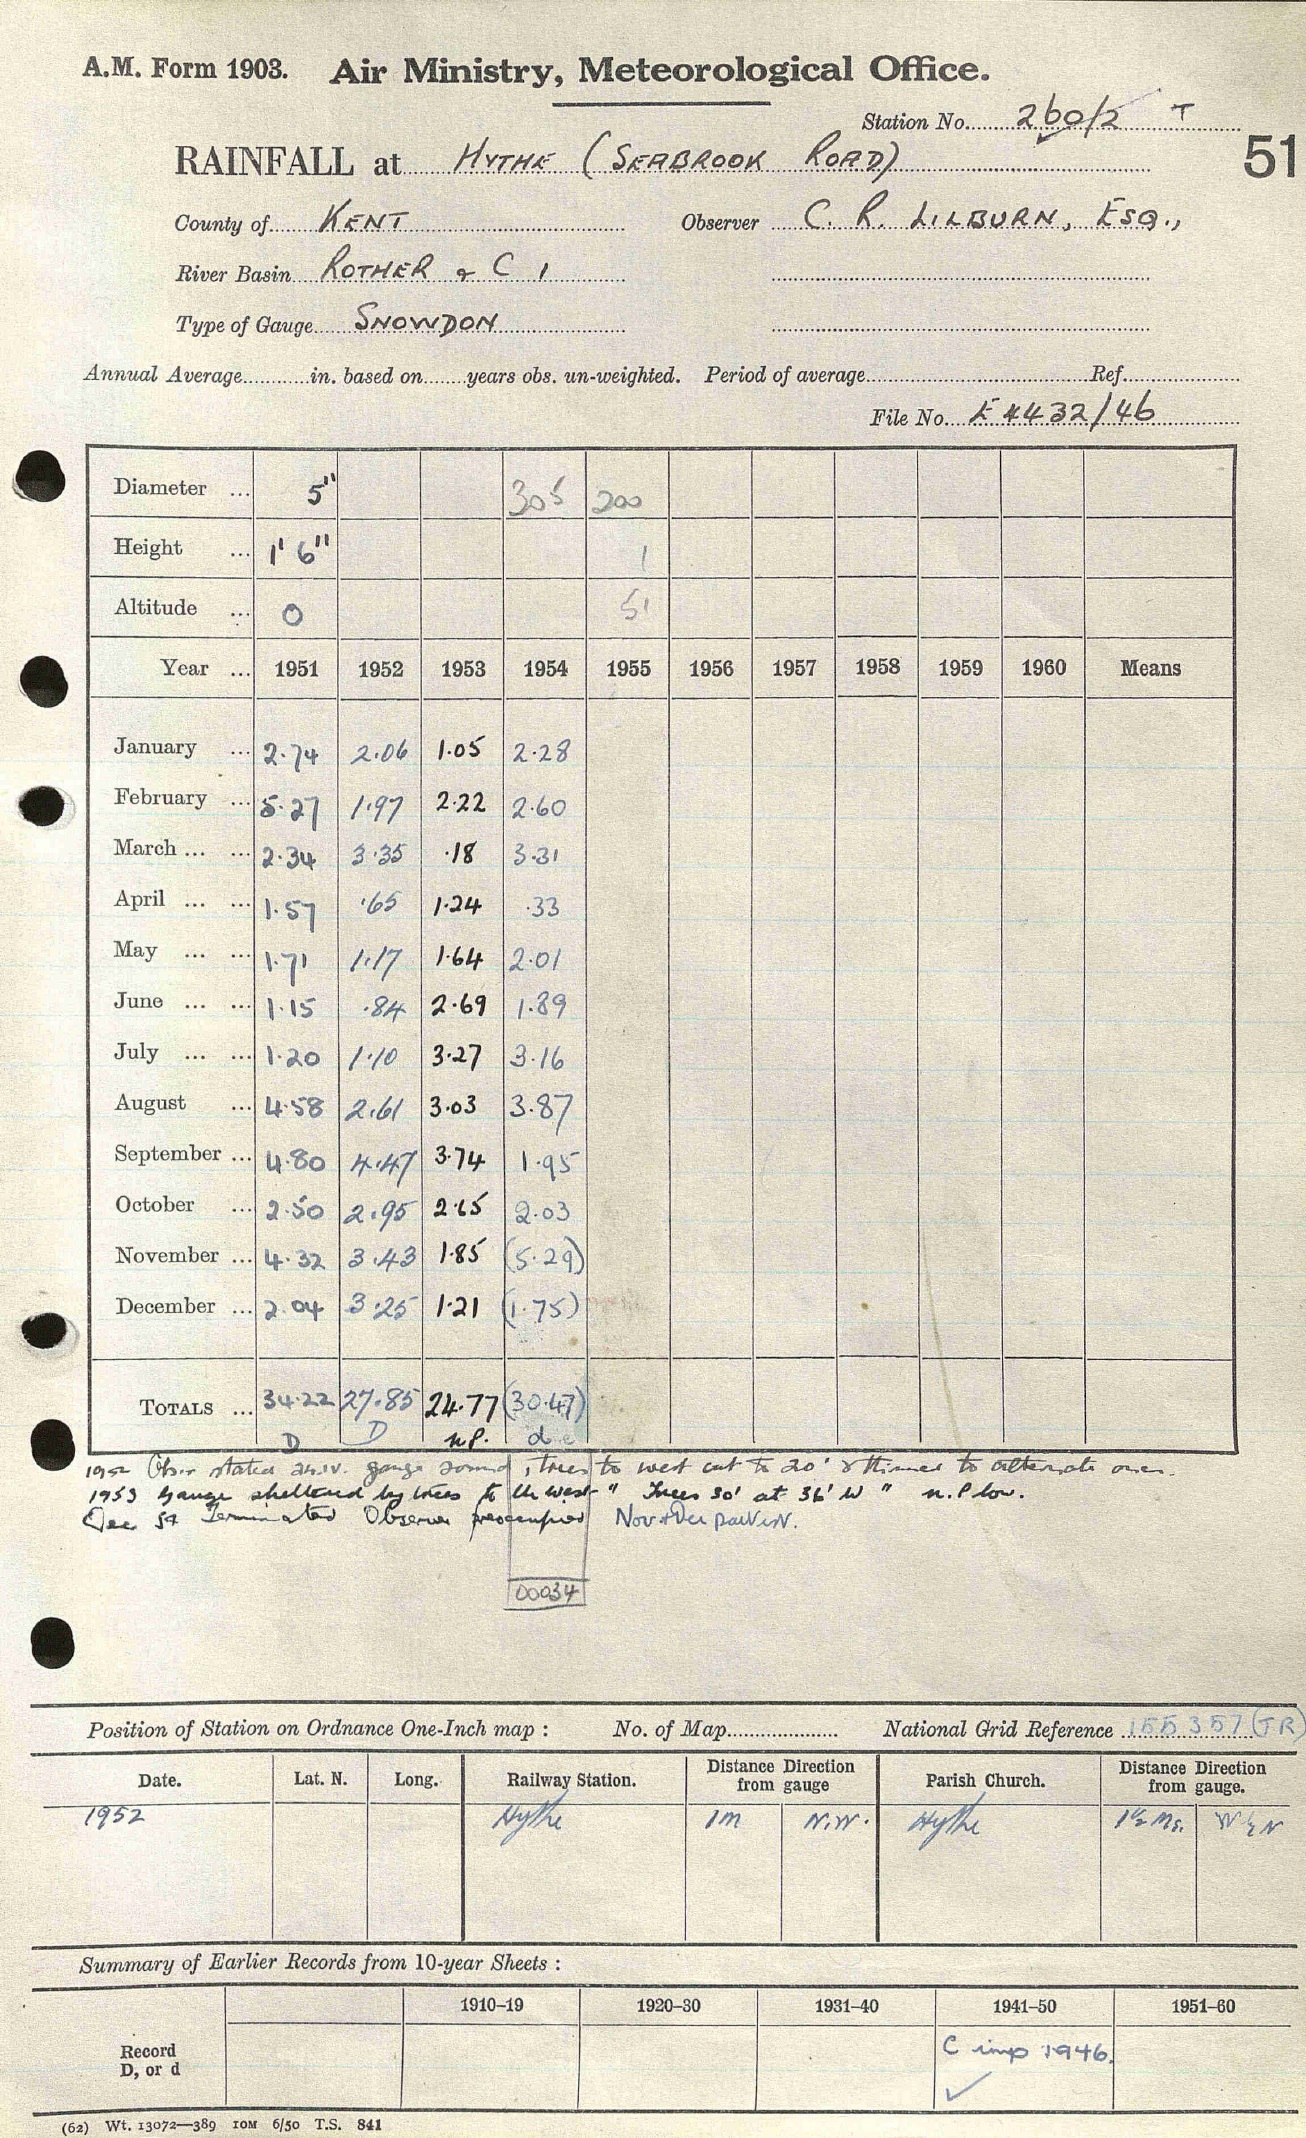 A.M. Form 1903. Air Ministry, Meteorological Office.
Station No. 260/2 T
RAINFALL at HYTHE (SEABROOK ROAD) 51
County of KENT Observer C. R. LILBURN, ESQ.,
River Basin ROTHER & C 1
Type of Gauge SNOWDON
Annual Average in. based on years obs. un-weighted. Period of average Ref.
File No. E 4432/46
Diameter ... 5" 305 200
Height ... 1' 6" 1
Altitude ... 0 51
Year ... 1951 1952 1953 1954 1955 1956 1957 1958 1959 1960 Means
January ... 2.74 2.06 1.05 2.28
February ... 5.27 1.97 2.22 2.60
March ... ... 2.34 3.35 .18 3.31
April ... ... 1.57 .65 1.24 .33
May ... ... 1.71 1.17 1.64 2.01
June ... ... 1.15 .84 2.69 1.89
July ... ... 1.20 1.10 3.27 3.16
August ... 4.58 2.61 3.03 3.87
September ... 4.80 4.47 3.74 1.95
October ... 2.50 2.95 2.65 2.03
November ... 4.32 3.43 1.85 (5.29)
December ... 2.04 3.25 1.21 (1.75)
TOTALS ... 34.22 27.85 24.77 (30.47)
D D n.P. d
1952 Obsr. stated gauge sound, trees to west cut to 20' & thinned to alternate ones.
1953 Gauge sheltered by trees to the west " Trees 30' at 36' W " n.P low.
Dec 54 Terminated Observer preoccupied Nov + Dec
00034
Position of Station on Ordnance One-Inch map : No. of Map National Grid Reference 155357 (TR)
Date. Lat. N. Long. Railway Station. Distance Direction from gauge Parish Church. Distance Direction from gauge.
1952 Hythe 1 M N.W. Hythe 1½ Ms. W & N
Summary of Earlier Records from 10-year Sheets :
1910–19 1920–30 1931–40 1941–50 1951–60
Record D, or d C imp 1946.
(62) Wt. 13072—389 10M 6/50 T.S. 841